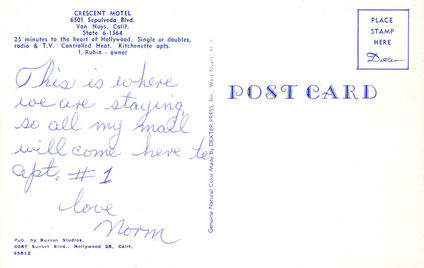 CRESCENT MOTEL
6501 Sepulveda Blvd.
Van Nuys, Calif.
State 6-1564
25 minutes to the heart of Hollywood. Single or doubles,
radio & T.V. Controlled Heat. Kitchenette apts.
I. Rubin - owner
This is where
we are staying
so all my mail
will come here to
apt. #1
love
Norm
Pub. by Russan Studios,
6087 Sunset Blvd., Hollywood 28, Calif.
95812
Genuine Natural Color Made By DEXTER PRESS, Inc., West Nyack, N. Y.
POST CARD
PLACE
STAMP
HERE
Dexter